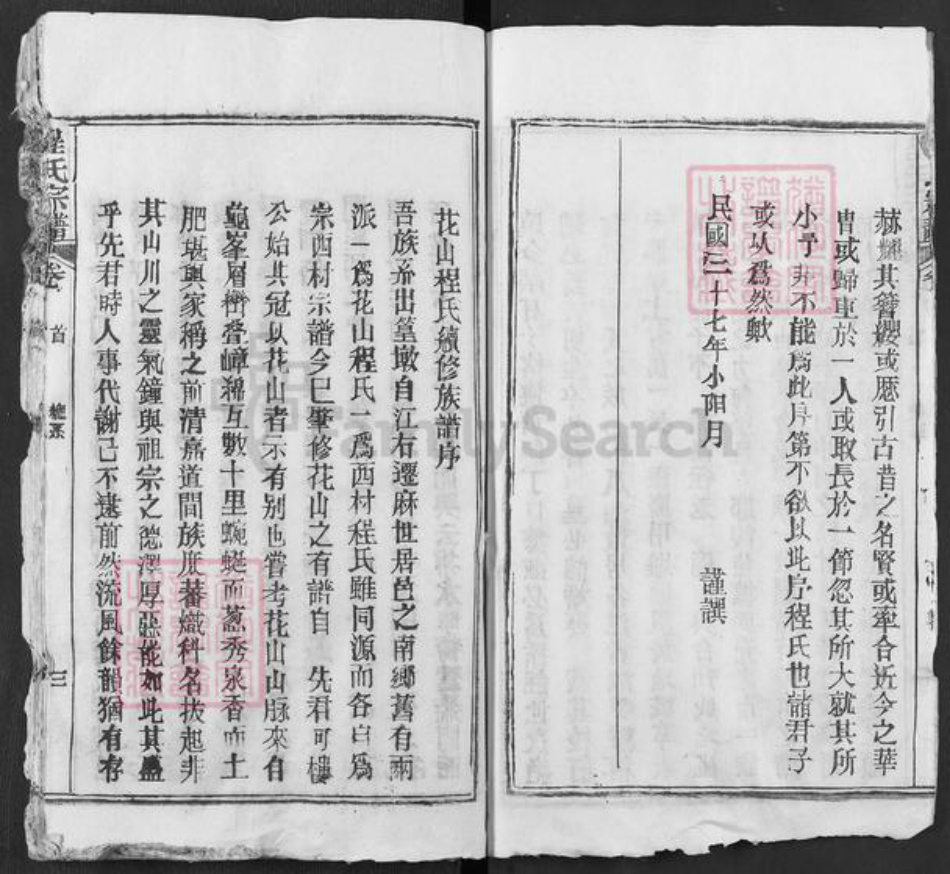 赫耀其簪纓或愿引古昔之名賢或牽合近今之華
冑或歸重於一人或取長於一節忽其所大就其所
小予非不能爲此序第不欲以此序程氏也諸君子
或以爲然歟
民國三十七年小阳月 謹譔
花山程氏續修族譜序
吾族系出篁墩自江右遷麻世居邑之南鄉舊有兩
派一爲花山程氏一爲西材程氏雖同源而各自爲
宗西村宗譜今已肇修花山之有譜自 先君可樓
公始其冠以花山者示有别也嘗考花山山脉來自
龜峯層巒叠嶂綿互數十里蜿蜒而葱秀泉香而土
肥堪輿家稱之前清嘉道間族庶蕃熾科名拔起非
其山川之靈氣鐘與祖宗之德澤厚惡能如此其盛
乎先君時人事代謝已不逮前然流風餘韻猶有存
程氏宗譜 卷 首 總系 三
FamilySearch